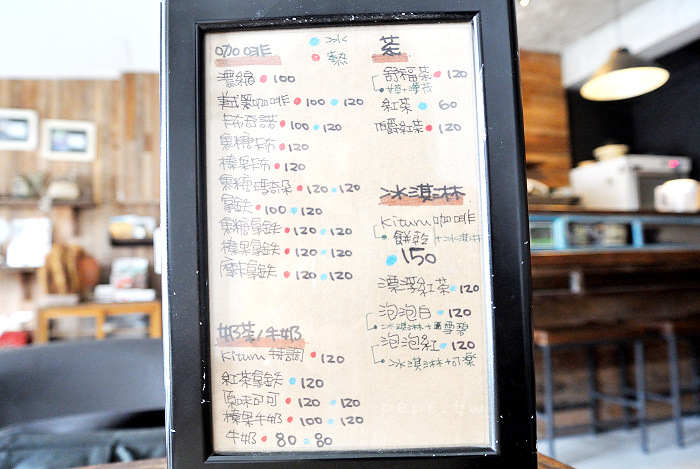 咖啡
冰
熱
濃縮 100
美式黑咖啡 100 120
卡布奇諾 100 120
焦糖卡布 120
榛果卡布 120
焦糖瑪奇朵 120 120
拿鐵 100 120
焦糖拿鐵 120 120
榛果拿鐵 120 120
摩卡拿鐵 120 120
奶茶/牛奶
Kituru 特調 120
紅茶拿鐵 120
原味可可 120 120
榛果牛奶 100 120
牛奶 80 80
茶
舒福茶 120
紅茶 60
伯爵紅茶 120
冰淇淋
Kituru 咖啡
餅乾 +冰淇淋
150
漂浮紅茶 120
泡泡白 120
冰淇淋+雪碧
泡泡紅 120
冰淇淋+可樂